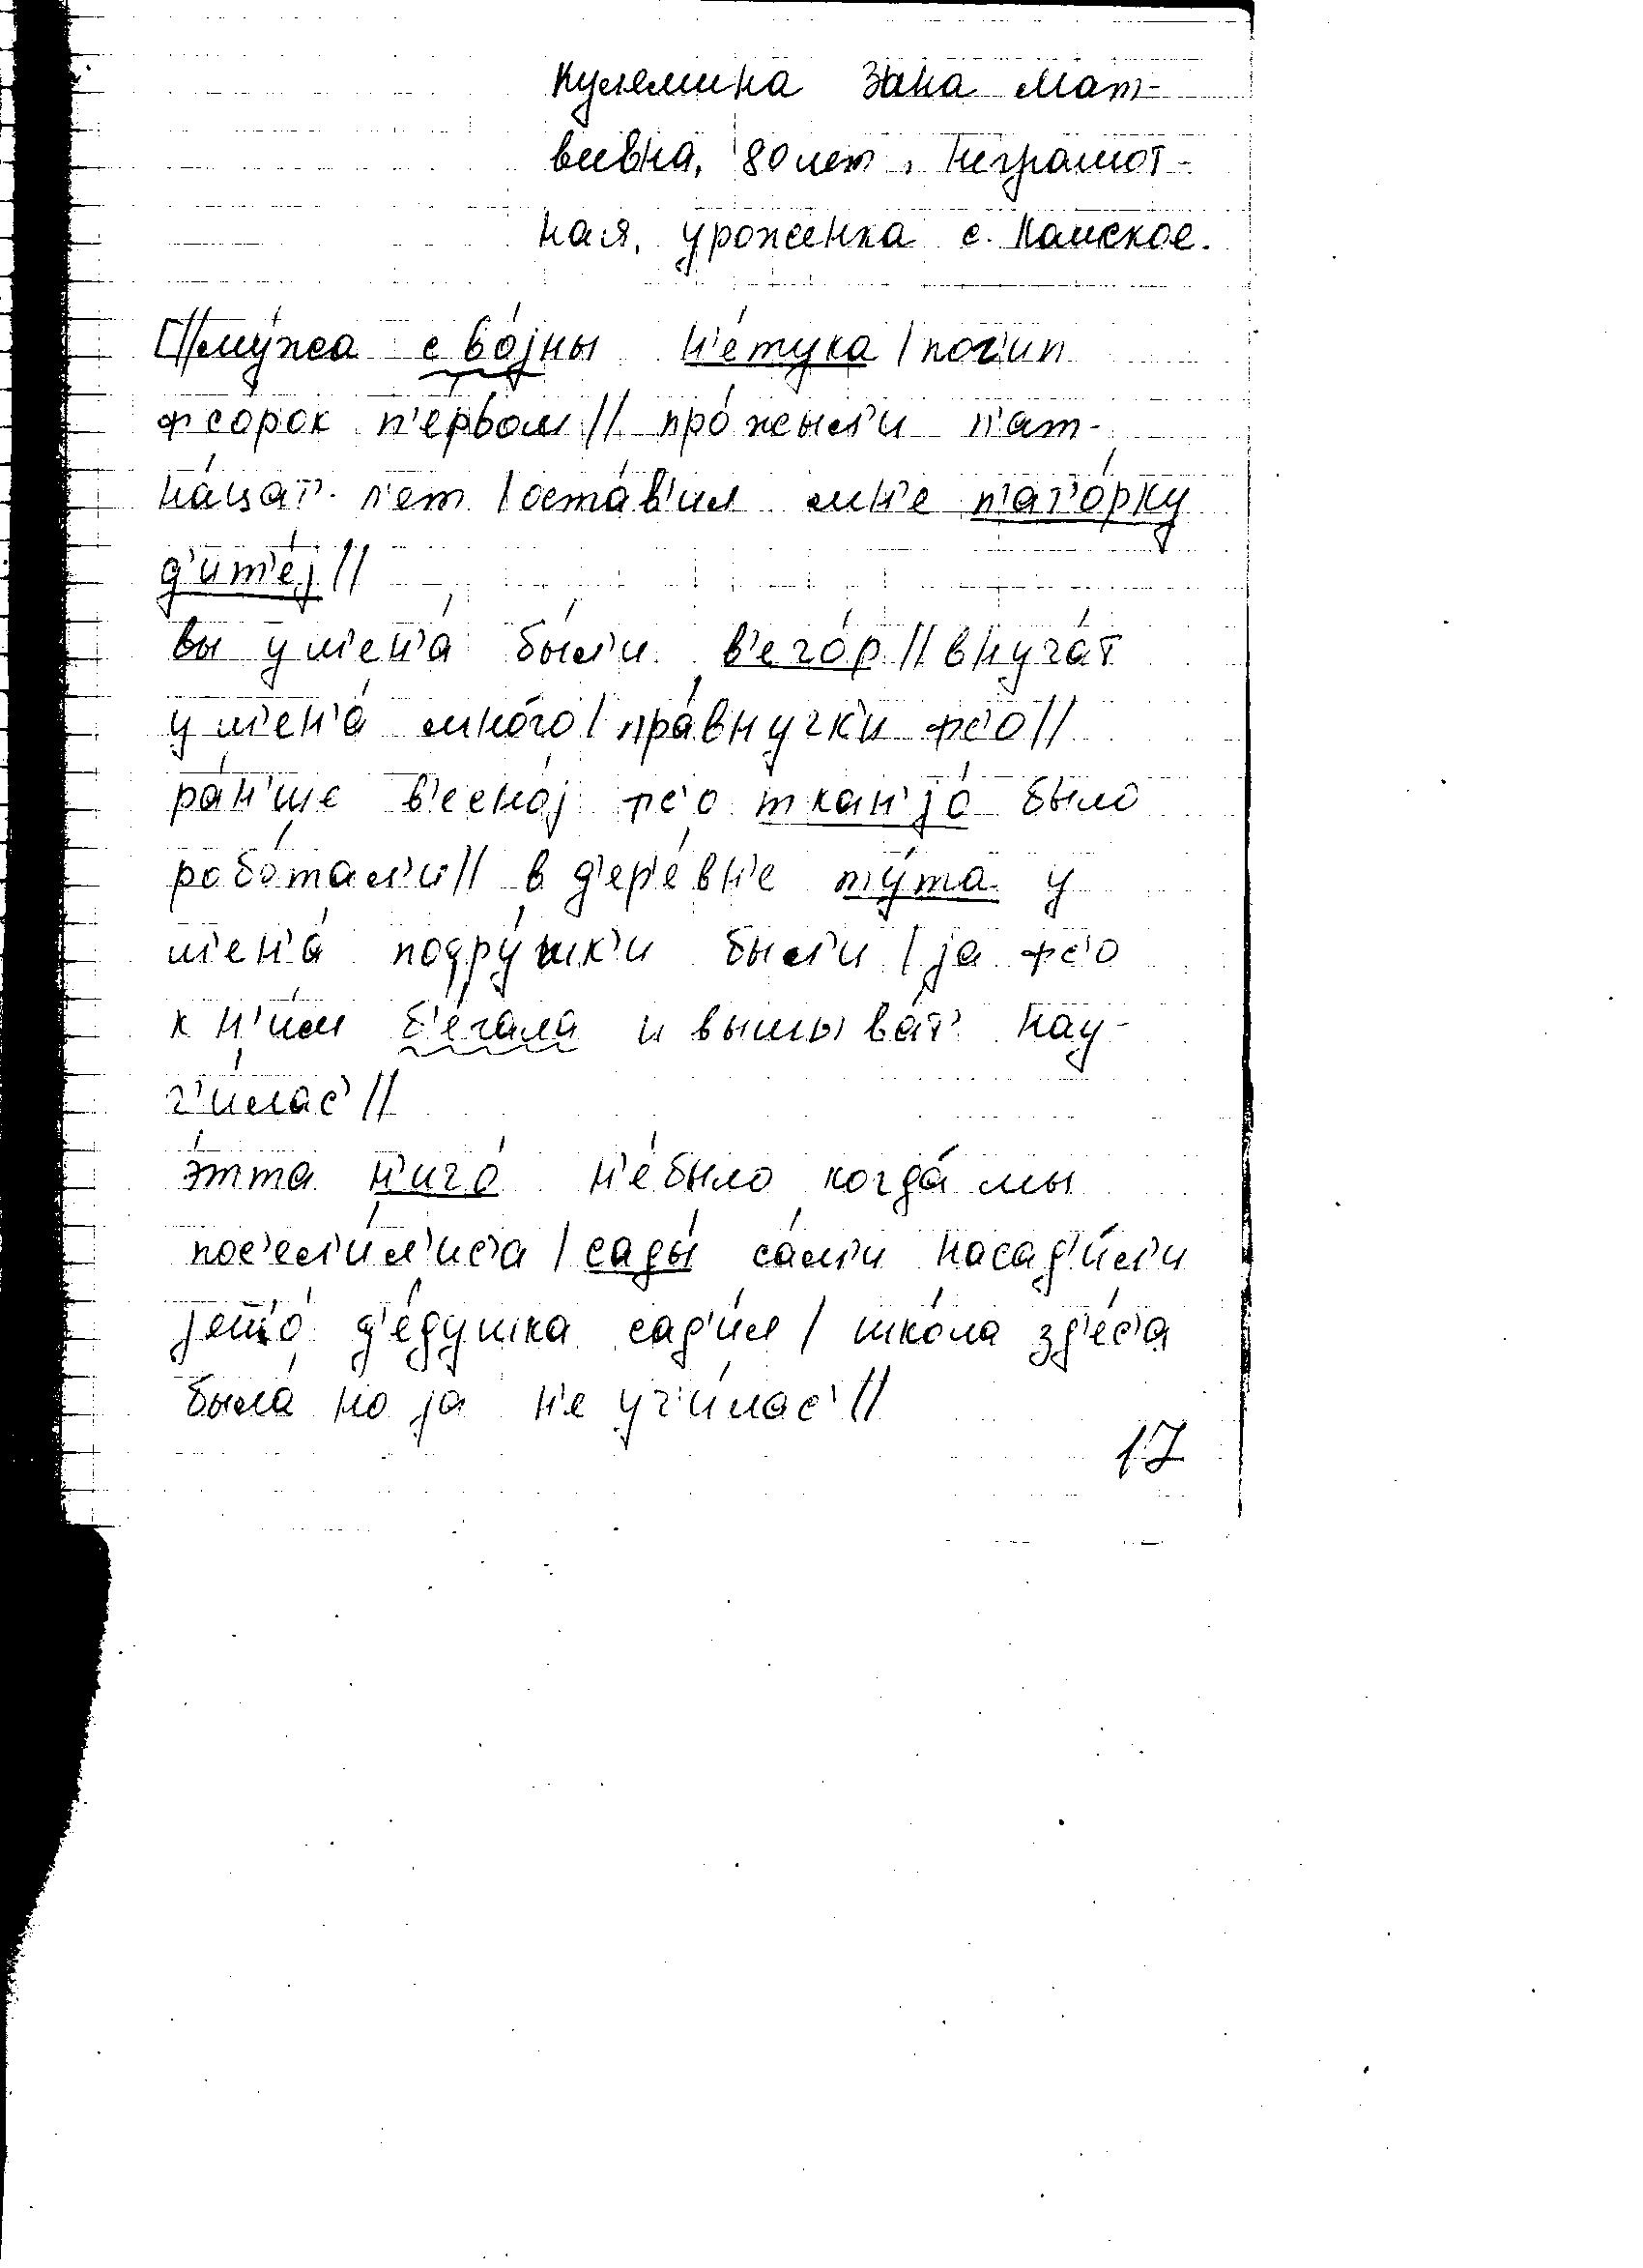 Кулемина Зана Мат-
веевна, 80 лет, неграмот-
ная, уроженка с. Камское.
[//му́жа с во́јны н'е́тука / пог'ип
фсорок п'е́рвом // про́жыл'и п'ат-
на́цат' л'ет / оста́в'ил мн'е п'ат'о́рку
д'ит'е́ј //
вы ум'ен'а́ бы́л'и в'ечо́р // внуча́т
у м'ен'а́ мно́го / пра́внучк'и фс'о //
ра́н'ше в'есно́ј фс'о ткан'јо́ было
рабо́тал'и // в д'ер'е́вн'е ту́та у
м'ен'а́ подру́шк'и был'и / ја фс'о
к н'и́м б'е́гала и вышыва́т' нау-
ч'и́лас' //
э́тта н'ичо́ н'е́было когда́ мы
пос'ел'и́л'ис'а / сады́ са́м'и насад'и́л'и
јешо́ д'е́душка сад'и́л / шко́ла зд'е́с'а
была́ но ја н'е уч'и́лас' //
17